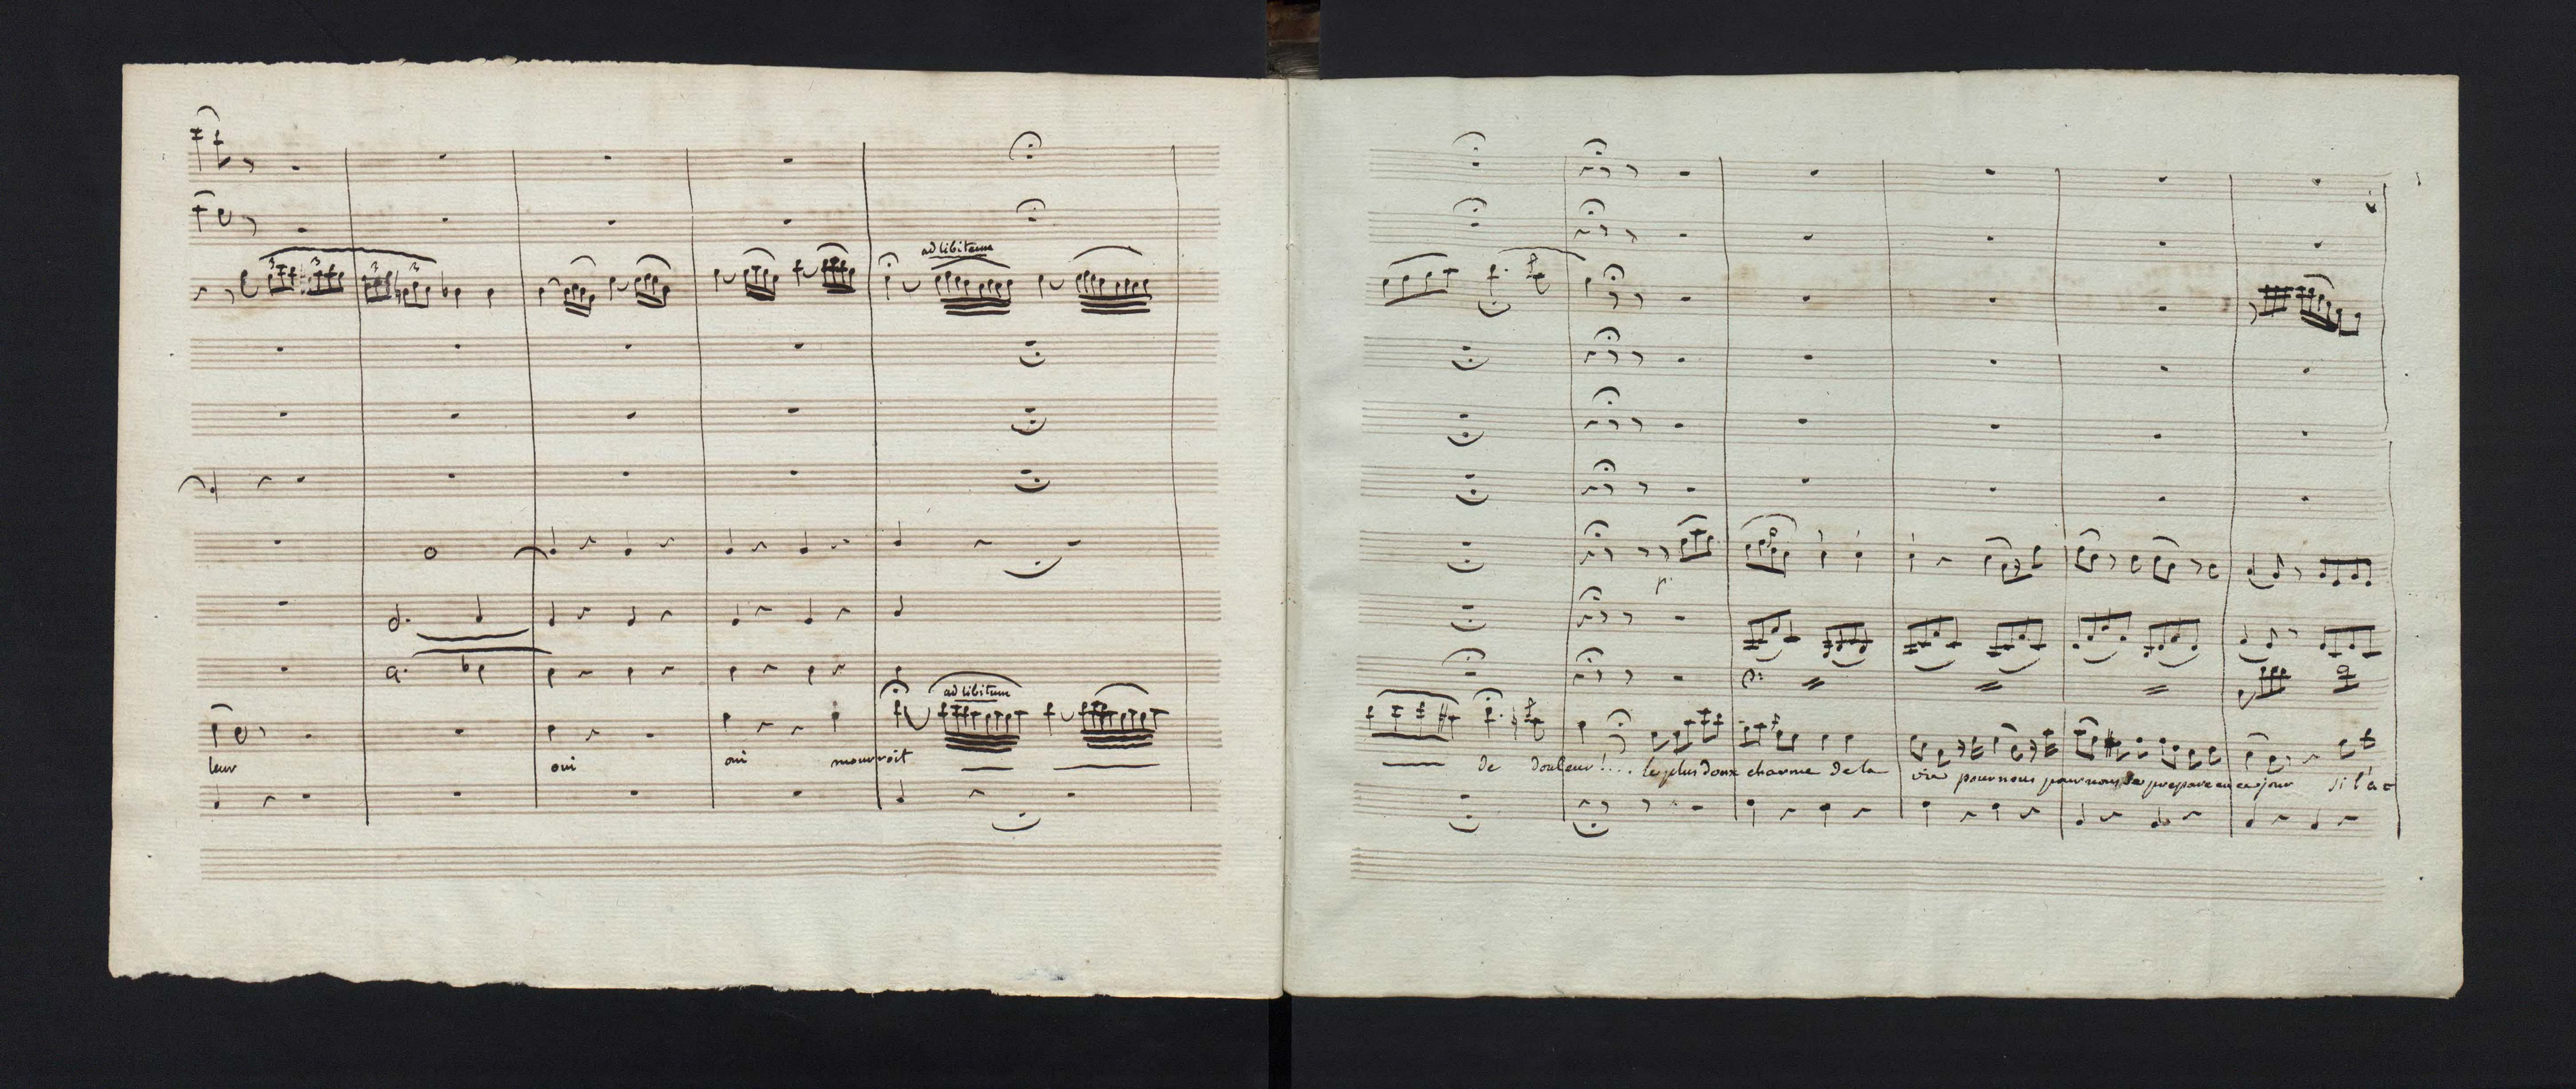 ad libitum
3 3 3 3
ad libitum
leur oui oui mourroit
p
de douleur!... le plus doux charme de la vie pour nous pour nous se prepare en ce jour si l'a